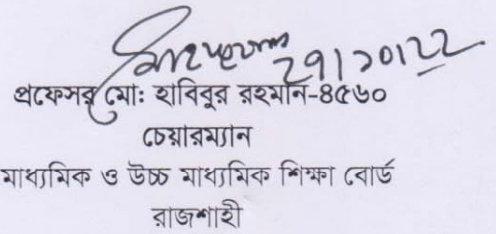 ২৭|১০|২২
প্রফেসর মোঃ হাবিবুর রহমান-৪৫৬০
চেয়ারম্যান
মাধ্যমিক ও উচ্চ মাধ্যমিক শিক্ষা বোর্ড
রাজশাহী